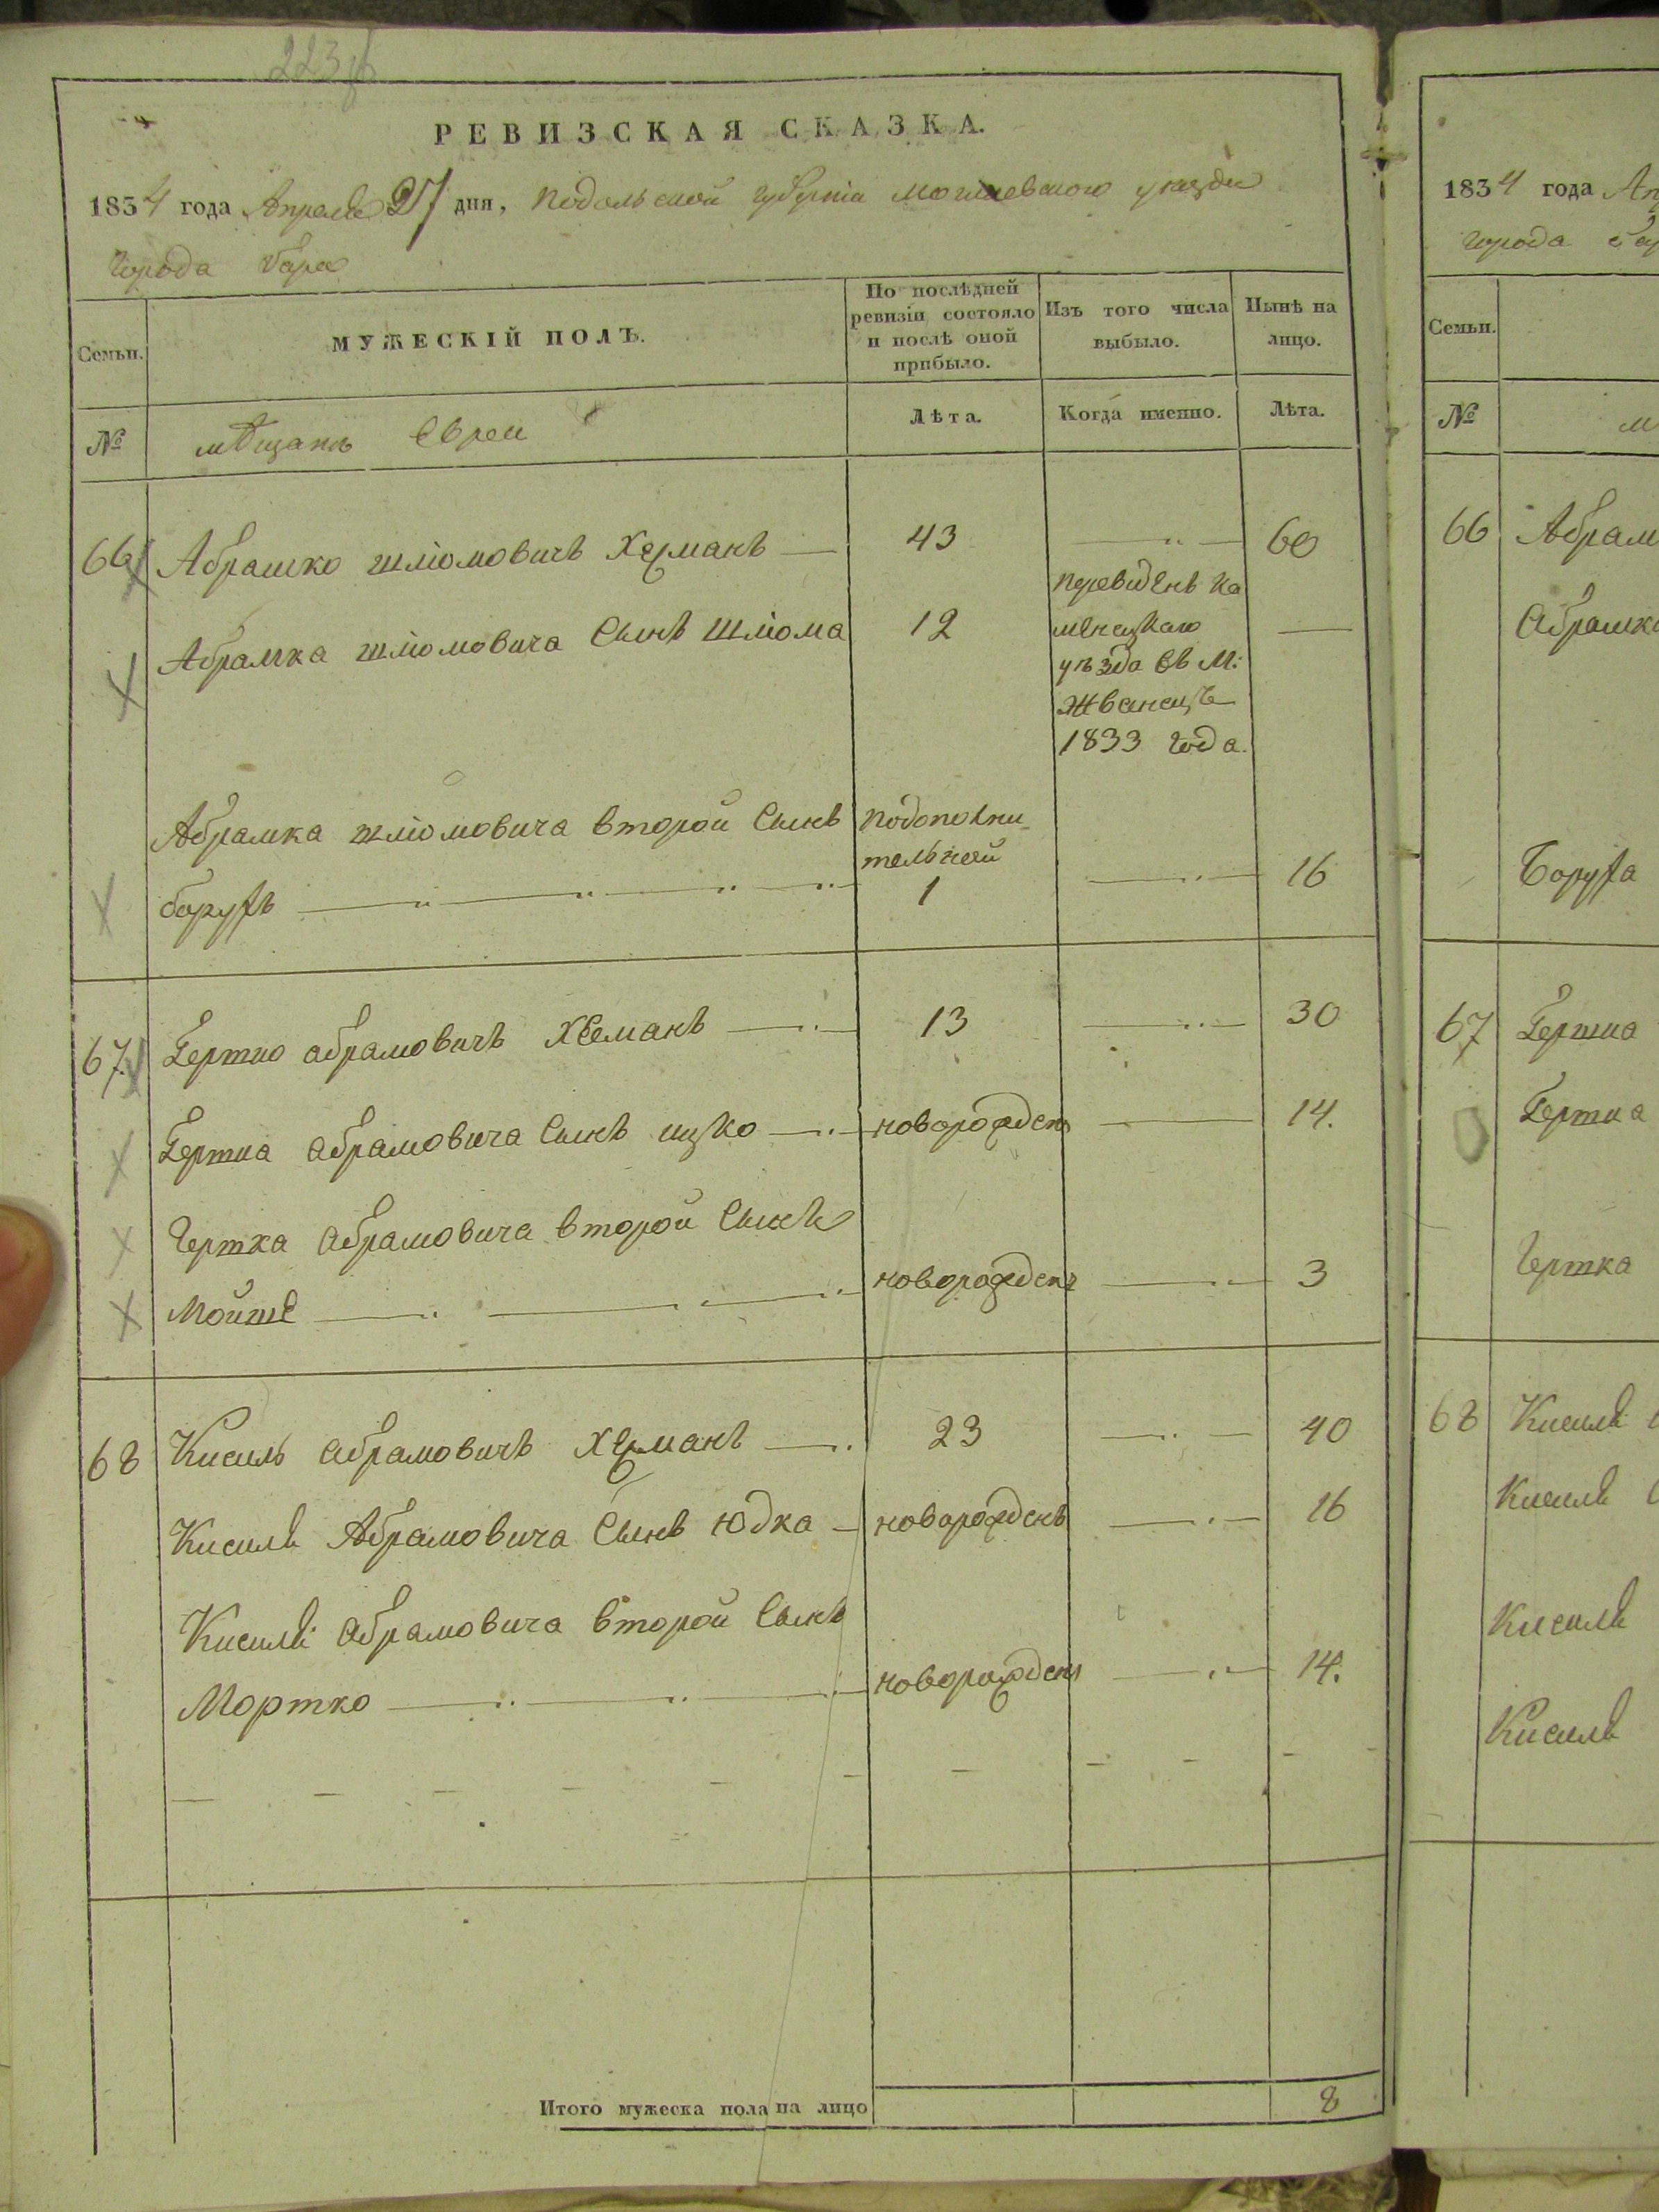 223
РЕВИЗСКАЯ СКАЗКА.
1834 года Апреля 27 дня, Подольской губернiи Могилевского уезда
города Бара
Семьи.
МУЖЕСКIЙ ПОЛЪ.
По послѣдней ревизiи состояло и послѣ оной прибыло.
Изъ того числа выбыло.
Нынѣ на лицо.
№
мѣщанъ Евреи
Лѣта.
Когда именно.
Лѣта.
66 Абрамко шлiомовичъ Херманъ 43 60
Абрамка шлiомовича Сынъ Шлiома 12
переведенъ Ка
менецкаго
уѣзда въ М:
Жванецъ
1833 года.
Абрамка шлiомовича второй Сынъ подополни
тельной
борухъ 1 16
67. Гертко абрамовичъ Херманъ 13 30
Гертка абрамовича Сынъ ицко новорожденъ 14.
Гертка абрамовича второй Сынъ
Мойше новорожденъ 3
68 Кисиль абрамовичъ Херманъ 23 40
Кисиля Абрамовича Сынъ Юдка новорожденъ 16
Кисиля абрамовича второй Сынъ
Мортко новорожденъ 14.
Итого мужеска пола на лицо 8
1834 года Ап
города
Семьи.
№
м
66 Абрам
Абрамк
Боруха
67 Гертка
Гертка
Гертка
68 Кисиля
Кисиля
Кисиля
Кисиля